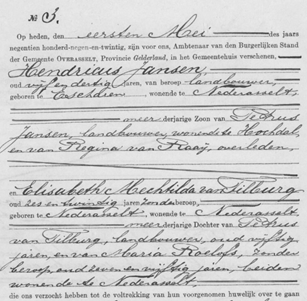 № 3.
Op heden, den eersten Mei des jaars
negentien honderd-negen-en-twintig, zijn voor ons, Ambtenaar van den Burgerlijken Stand
der Gemeente OVERASSELT, Provincie Gelderland, in het Gemeentehuis verschenen,
Hendricus Jansen,
oud vijf en dertig jaren, beroep landbouwer,
geboren te wonende te Nederasselt
meerderjarige Zoon van Petrus
Jansen, landbouwer, wonende te
en van Regina van Raaij, overleden,
en Elisabeth Mechtilda van Tilburg
oud zes en twintig jaren, zonder beroep,
geboren te Nederasselt, wonende te Nederasselt
meerderjarige Dochter van Petrus
van Tilburg, landbouwer, oud vijftig
jaren, en van Maria Roelofs, zonder
beroep, oud zeven en vijftig jaren, beiden
wonende te Nederasselt
die ons verzocht hebben tot de voltrekking van hun voorgenomen huwelijk over te gaan